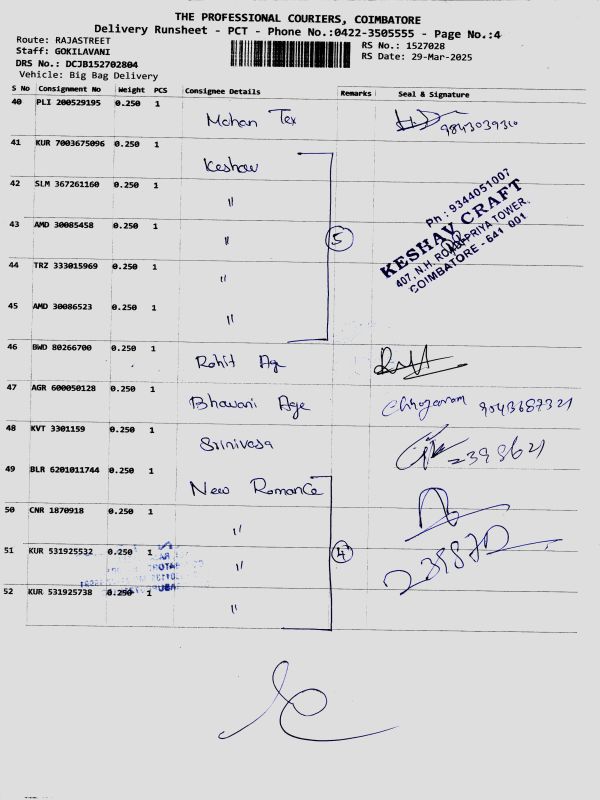 THE PROFESSIONAL COURIERS, COIMBATORE
Delivery Runsheet - PCT - Phone No.:0422-3505555 - Page No.:4
Route: RAJASTREET
Staff: GOKILAVANI
DRS No.: DCJB152702804
Vehicle: Big Bag Delivery
RS No.: 1527028
RS Date: 29-Mar-2025
S No Consignment No Weight PCS Consignee Details Remarks Seal & Signature
40 PLI 200529195 0.250 1 Mohan Tex 9843039310
41 KUR 7003675096 0.250 1 Keshav
42 SLM 367261160 0.250 1 "
43 AMD 30085458 0.250 1 " 5
44 TRZ 333015969 0.250 1 "
45 AMD 30086523 0.250 1 "
Ph : 9344051007
KESHAV CRAFT
407, N.H. ROAD, PRIYA TOWER,
COIMBATORE - 641 001
46 BWD 80266700 0.250 1 Rohit Ag
47 AGR 600050128 0.250 1 Bhavani Age 9043687321
48 KVT 3301159 0.250 1 Srinivasa 239862
49 BLR 6201011744 0.250 1 New Romance
50 CNR 1870918 0.250 1 "
51 KUR 531925532 0.250 1 " 4
52 KUR 531925738 0.250 1 "